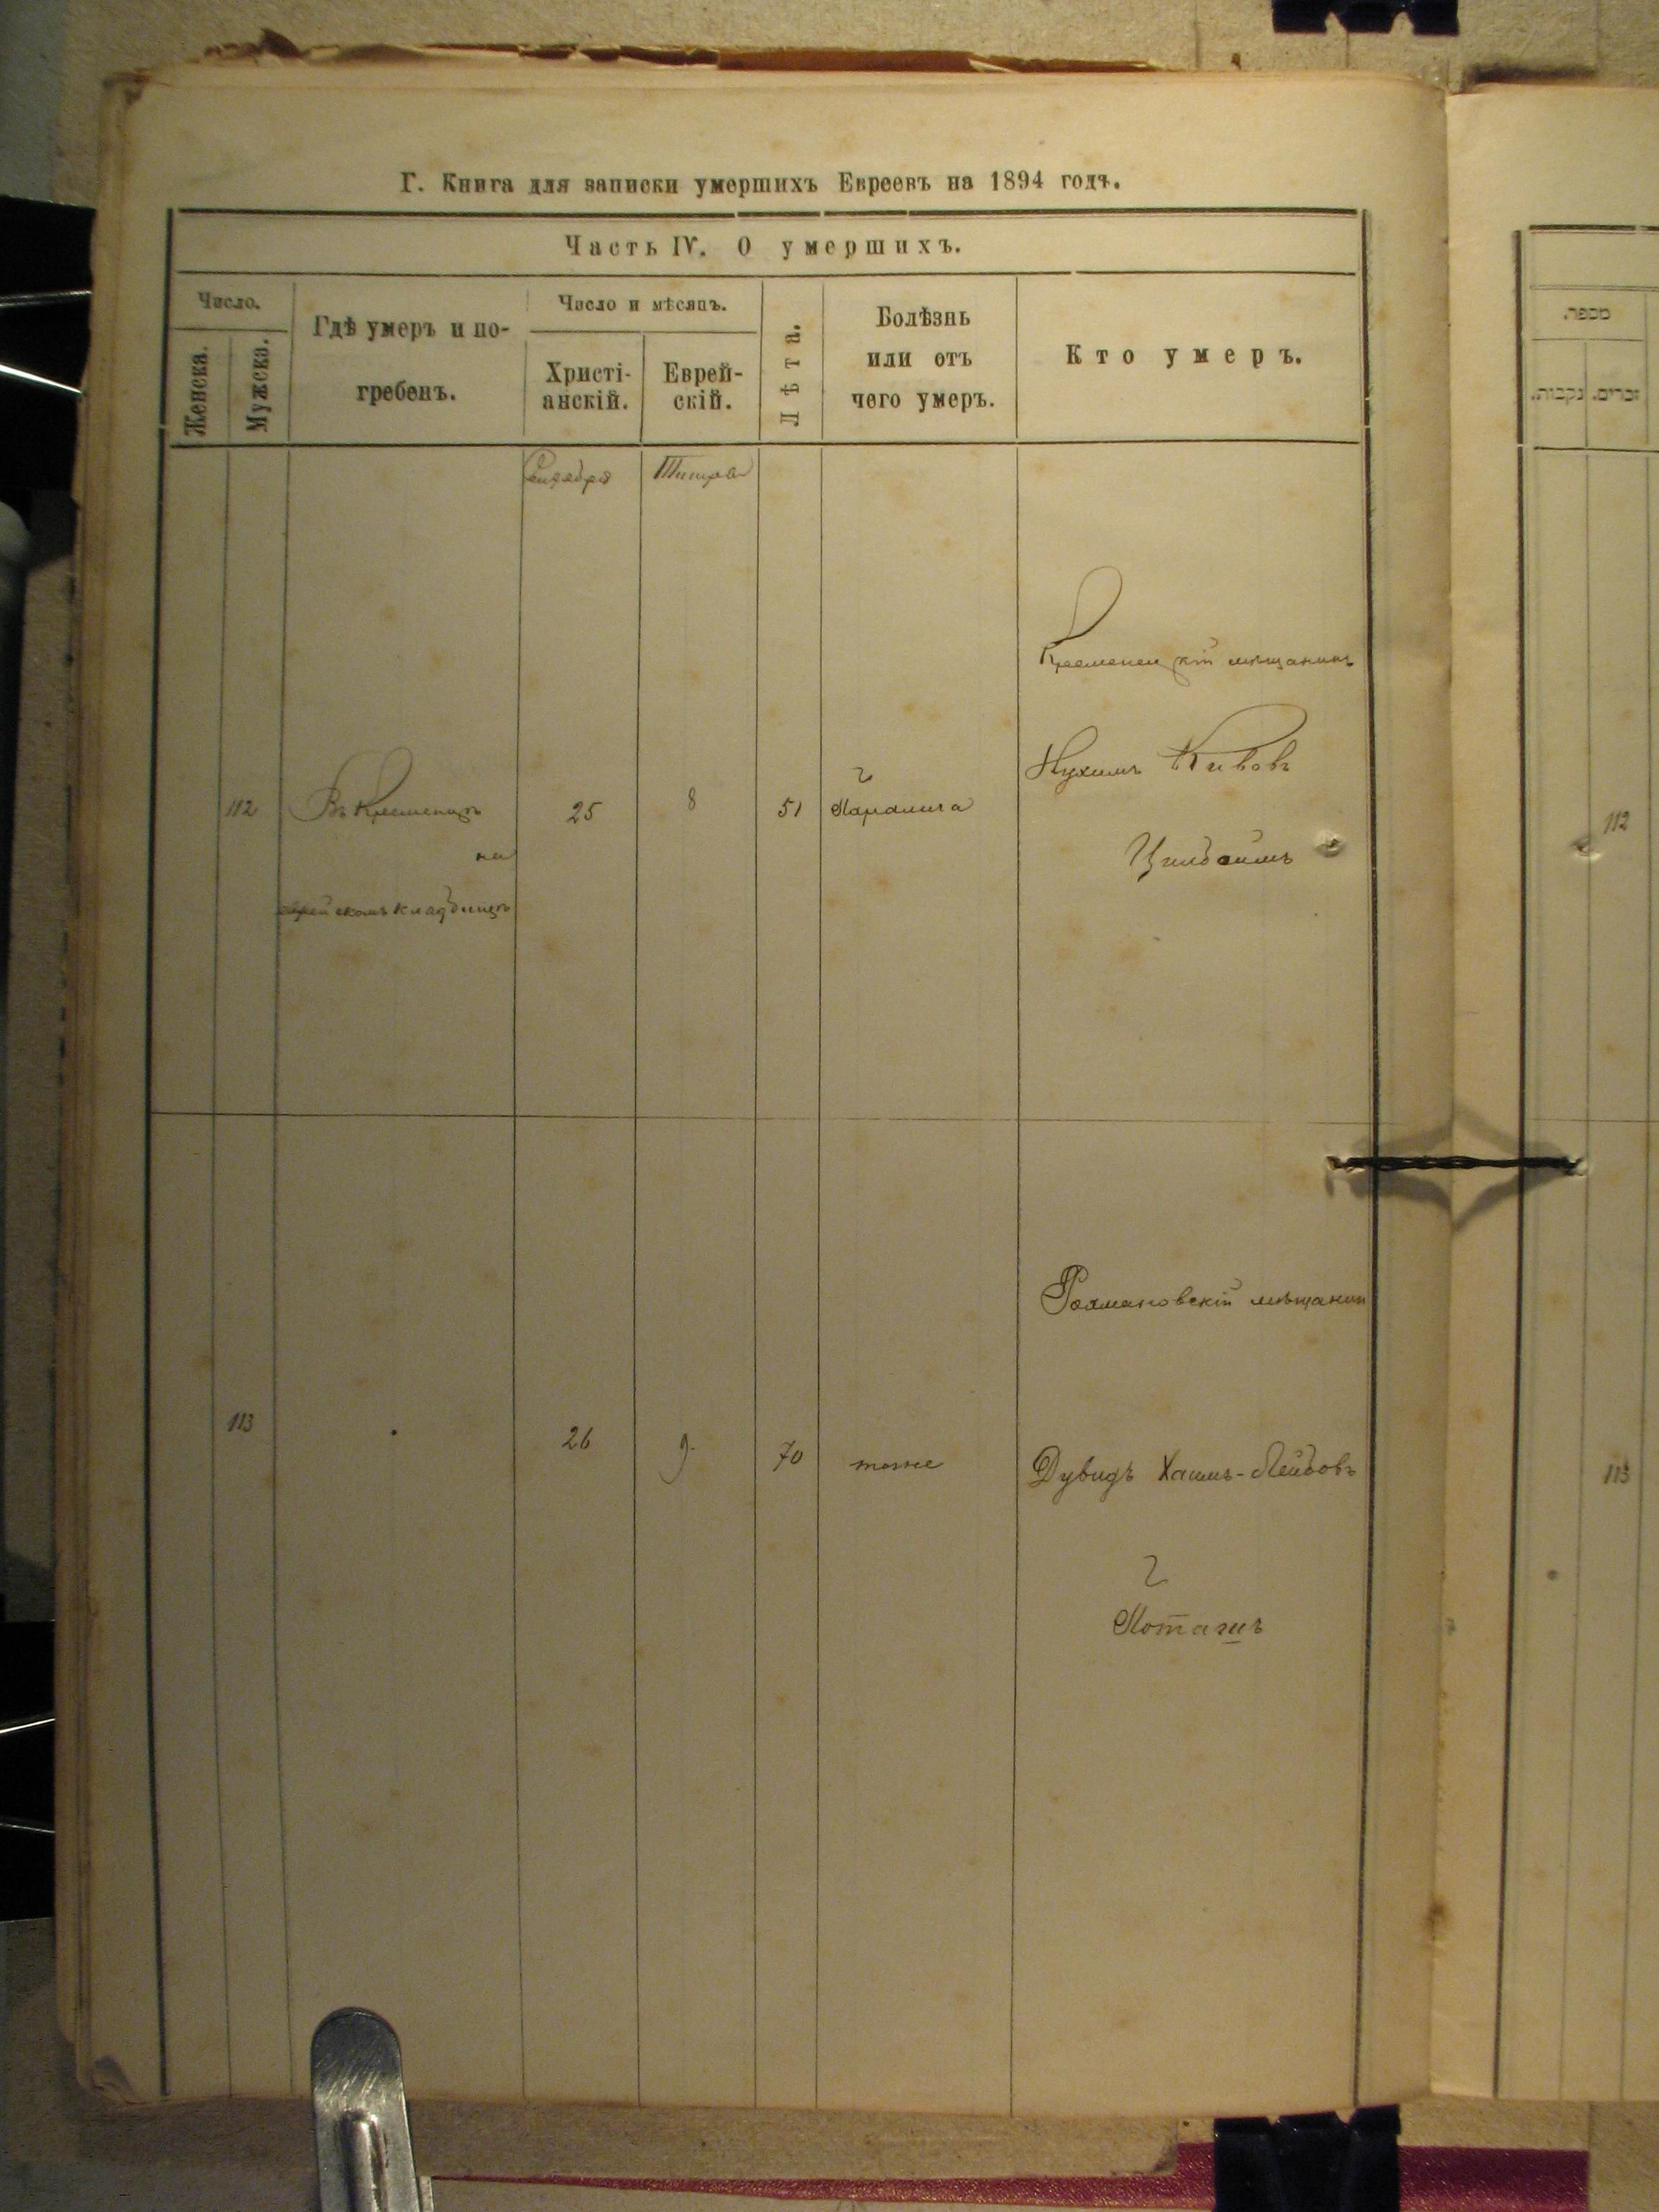 Г. Книга для записки умершихъ Евреевъ на 1894 годъ.
Часть IV. О умершихъ.
Число.
Женска.
Мужска.
Гдѣ умеръ и по-
гребенъ.
Число и мѣсяцъ.
Христі-
анскій.
Еврей-
скій.
Лѣта.
Болѣзнь
или отъ
чего умеръ.
Кто умеръ.
Сентября
Тишра
Кременецкій мѣщанинъ
Нухимъ Кивовъ
112
Въ Кременцѣ
25
8
51
Паралича
на
еврейскомъ кладбищѣ
Рахмановскій мѣщанин
113
26
9
70
тоже
Дувидъ Хаимъ-Лейбовъ
Поташъ
מספר.
נקבות.
זכרים.
112
113